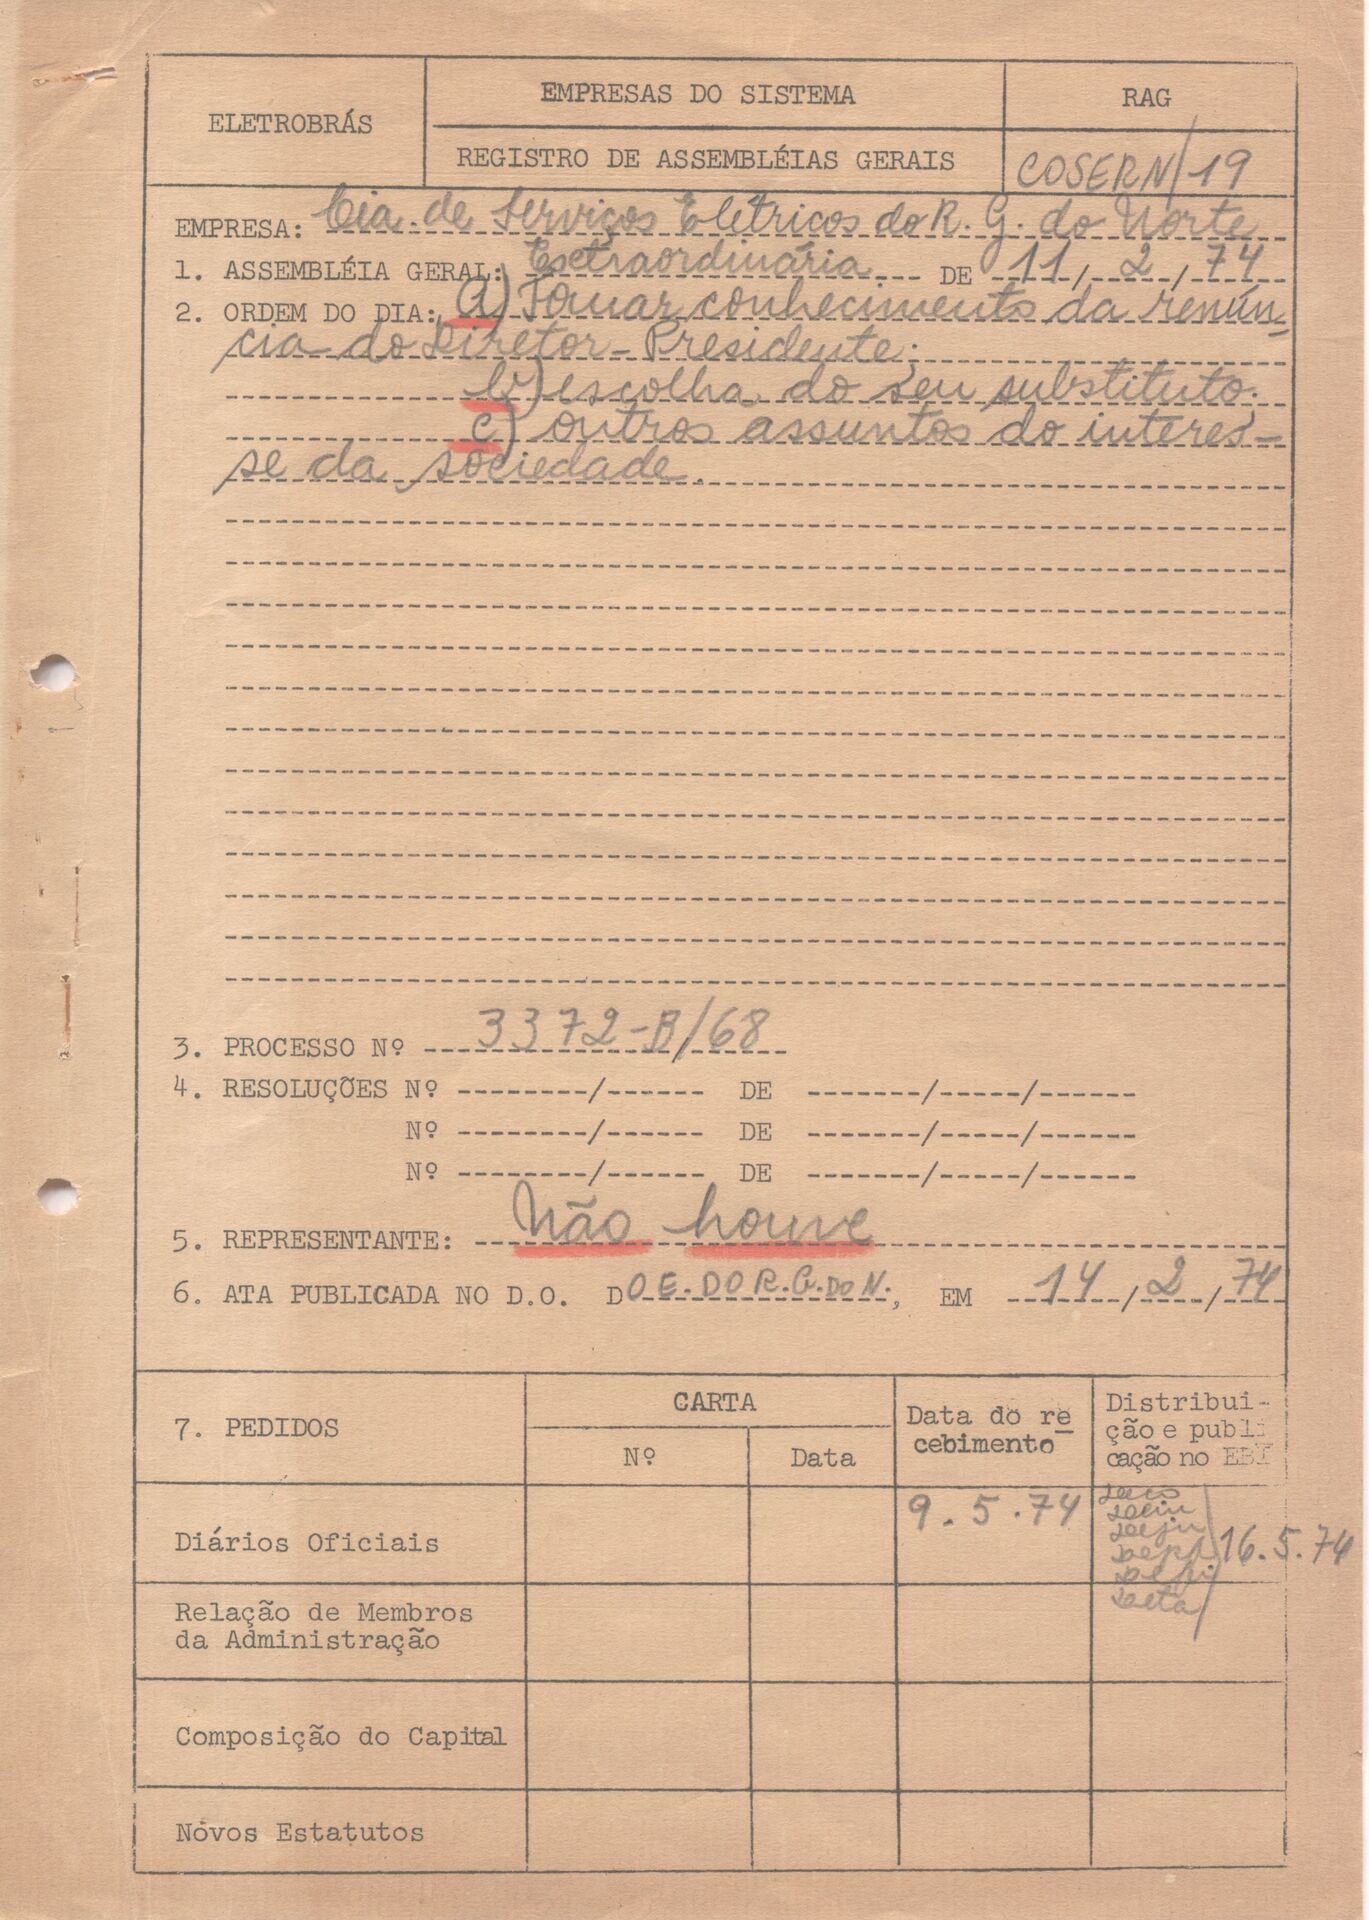 ELETROBRÁS
EMPRESAS DO SISTEMA
REGISTRO DE ASSEMBLÉIAS GERAIS
RAG
COSERN/19
EMPRESA: Cia. de Serviços Elétricos do R. G. do Norte
1. ASSEMBLÉIA GERAL: Extraordinária DE 11/2/74
2. ORDEM DO DIA: a) Tomar conhecimento da renún-
cia do Diretor-Presidente;
b) escolha do seu substituto;
c) outros assuntos do interes-
se da sociedade.
3. PROCESSO Nº 3372-B/68
4. RESOLUÇÕES Nº --------/------ DE -------/-----/------
Nº --------/------ DE -------/-----/------
Nº --------/------ DE -------/-----/------
5. REPRESENTANTE: Não houve
6. ATA PUBLICADA NO D.O. DO E. DO R. G. DO N., EM 14/2/74
7. PEDIDOS
CARTA
Nº
Data
Data do re
cebimento
Distribui-
ção e publi
cação no EBI
Diários Oficiais
9.5.74
16.5.74
Relação de Membros
da Administração
Composição do Capital
Novos Estatutos